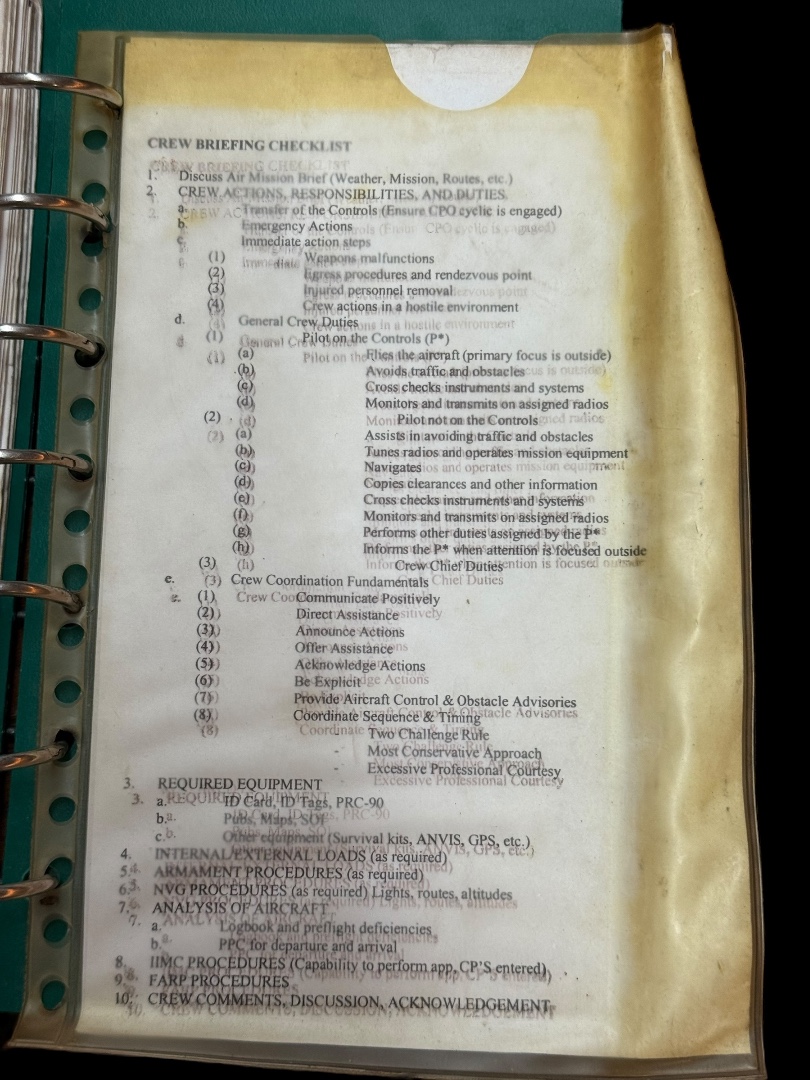 CREW BRIEFING CHECKLIST
1. Discuss Air Mission Brief (Weather, Mission, Routes, etc.)
2. CREW ACTIONS, RESPONSIBILITIES, AND DUTIES
a. Transfer of the Controls (Ensure CPO cyclic is engaged)
b. Emergency Actions
c. Immediate action steps
(1) Weapons malfunctions
(2) Egress procedures and rendezvous point
(3) Injured personnel removal
(4) Crew actions in a hostile environment
d. General Crew Duties
(1) Pilot on the Controls (P*)
(a) Flies the aircraft (primary focus is outside)
(b) Avoids traffic and obstacles
(c) Cross checks instruments and systems
(d) Monitors and transmits on assigned radios
(2) Pilot not on the Controls
(a) Assists in avoiding traffic and obstacles
(b) Tunes radios and operates mission equipment
(c) Navigates
(d) Copies clearances and other information
(e) Cross checks instruments and systems
(f) Monitors and transmits on assigned radios
(g) Performs other duties assigned by the P*
(h) Informs the P* when attention is focused outside
(3) Crew Chief Duties
e. Crew Coordination Fundamentals
(1) Communicate Positively
(2) Direct Assistance
(3) Announce Actions
(4) Offer Assistance
(5) Acknowledge Actions
(6) Be Explicit
(7) Provide Aircraft Control & Obstacle Advisories
(8) Coordinate Sequence & Timing
- Two Challenge Rule
- Most Conservative Approach
- Excessive Professional Courtesy
3. REQUIRED EQUIPMENT
a. ID Card, ID Tags, PRC-90
b. Pubs, Maps, SOI
c. Other equipment (Survival kits, ANVIS, GPS, etc.)
4. INTERNAL/EXTERNAL LOADS (as required)
5. ARMAMENT PROCEDURES (as required)
6. NVG PROCEDURES (as required) Lights, routes, altitudes
7. ANALYSIS OF AIRCRAFT
a. Logbook and preflight deficiencies
b. PPC for departure and arrival
8. IIMC PROCEDURES (Capability to perform app, CP'S entered)
9. FARP PROCEDURES
10. CREW COMMENTS, DISCUSSION, ACKNOWLEDGEMENT